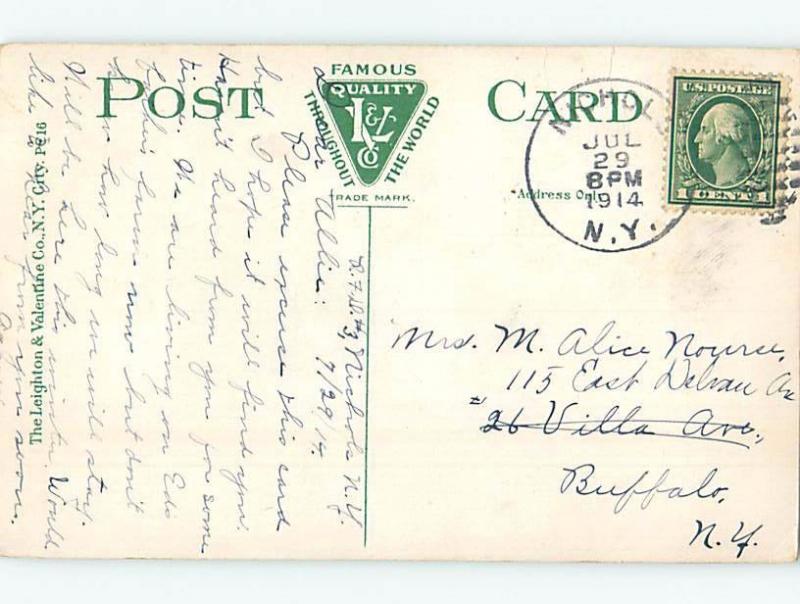 POST CARD
FAMOUS
QUALITY
L&V
Co
THROUGHOUT
THE WORLD
TRADE MARK.
Address Only
U.S. POSTAGE
1 CENT 1
NICHOLS
JUL
29
8PM
1914
N.Y.
The Leighton & Valentine Co., N.Y. City.
R.F.D. #3, Nichols N.Y.
7/29/14.
Dear Allie:
Please excuse this card
but I hope it will find you.
Haven't heard from you for some
time. We are living on Eds
farm now but don't
know how long we will stay.
Will be here this winter. Would
like to hear from you soon.
Mrs. M. Alice Nourse,
115 East Delavan Av
26 Villa Ave,
Buffalo,
N.Y.